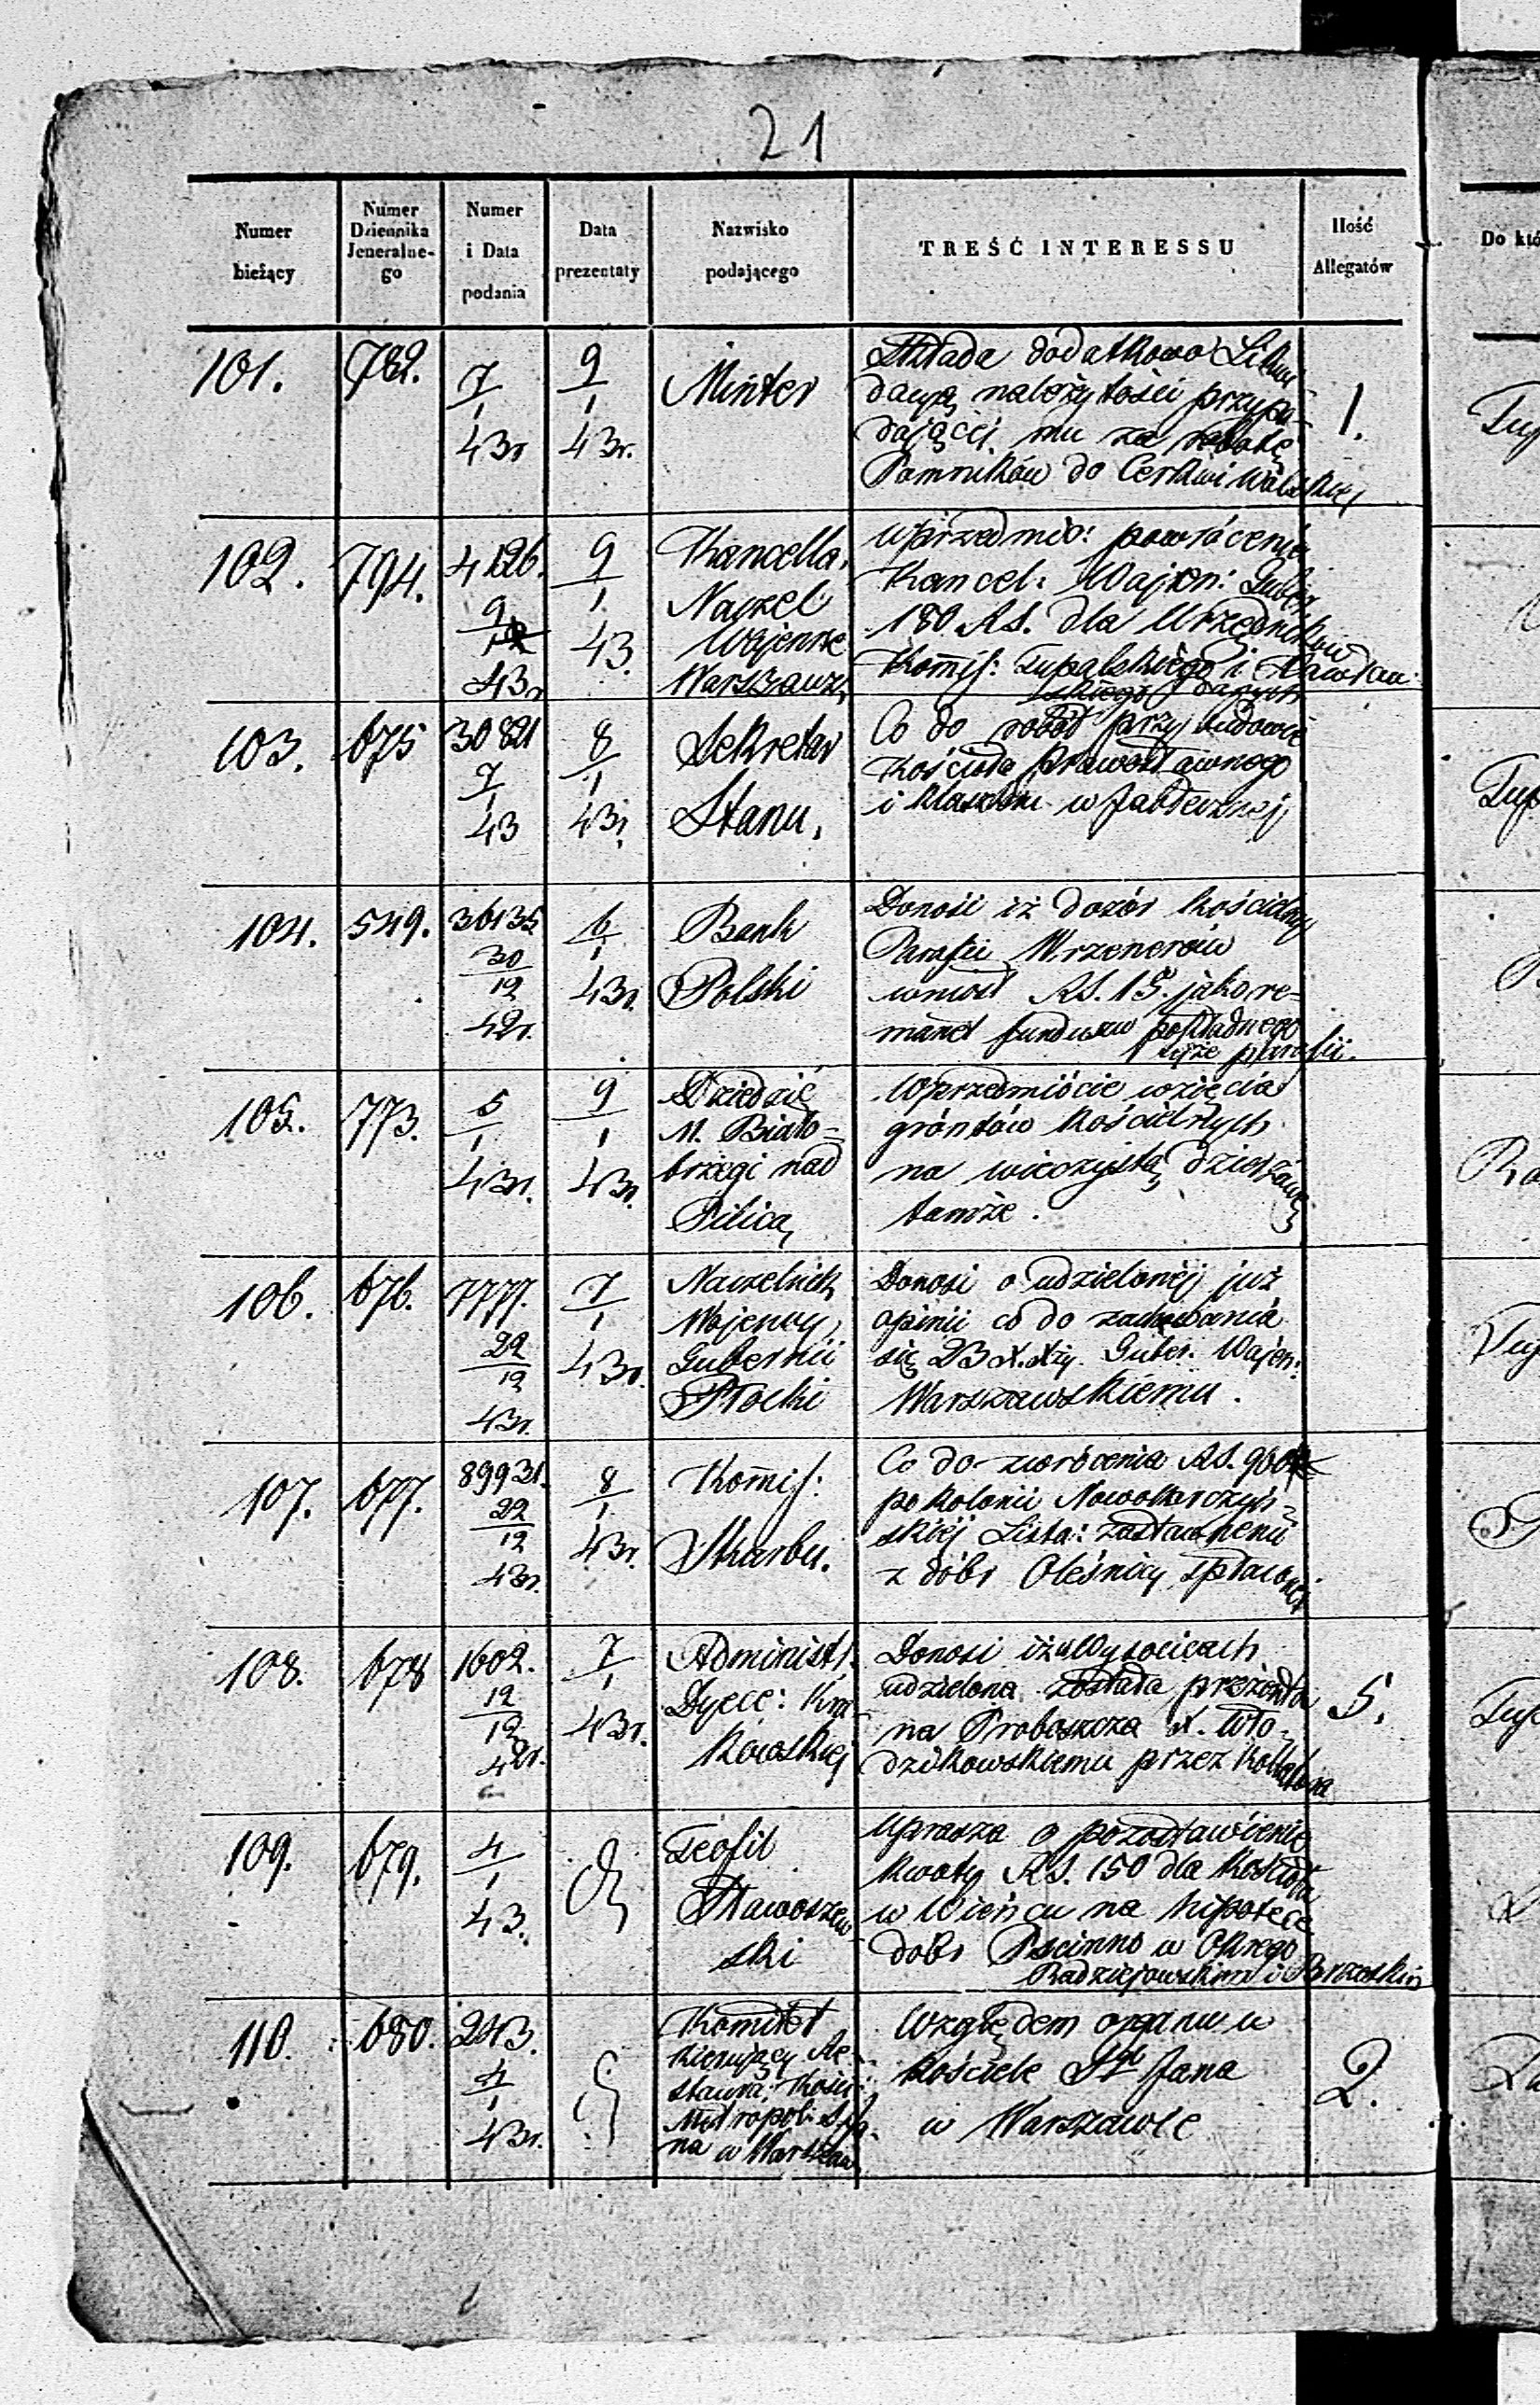 21
Numer bieżący
Numer Dziennika Jeneralnego
Numer i Data podania
Data prezentaty
Nazwisko podającego
TREŚĆ INTERESSU
Ilość Allegatów
Do któ
101. 782. 7/1 43r 9/1 43r. Minter
Składa dodatkowo Likwi
dacyą należytości przypa-
dającéj mu za robotę
Pomników do Cerkwi Wolskiéj
1.
102. 794. 4126. 9/1 43r 9/1 43.
Kancella.
Naczel
Wojenne
Warszaws
Wprzedmio: powrócenia
Kancel: Wojen: Guber
180 RS. dla Urzędników
Kommis: Tupalskiego i
skiego danych
103. 675 30821 7/1 43 8/1 43r.
Sekretar
Stanu.
Co do robót przy budowie
Kościoła prawosławnego
i klasztoru w Jabłecznej
104. 549. 36135 30/12 42r. 6/1 43r.
Bank
Polski
Donosi iż dozór kościelny
Parafii Wrzenerów
wniósł RS. 15. jako re-
manet funduszu pokładnego
tejże parafii.
105. 773. 5/1 43r. 9/1 43r.
Dziedzic
M. Biało-
brzegi nad
Pilicą
Wprzedmiocie wzięcia
gróntów Kościelnych
na wieczystą dzierżawę
tamże.
106. 676. 7777. 22/12 43r. 7/1 43r.
Naczelnik
Wojenny
Gubernii
Płocki
Donosi o udzielonéj już
opinii co do zachowania
się 23 X.Xży. Guber. Wojen:
Warszawskiemu.
107. 677. 89931. 22/12 43r. 8/1 43r.
Kommis:
Skarbu.
Co do zwrócenia RS.
po kolonii Nowokorczyń-
skiéj Lista: zastawnemi
z dóbr Oleśnicy spłaconéj
108. 678 1602. 12/12 42r. 7/1 43r.
Administ.
Dyece: Kra
kowskiéj
Donosi iż w Wysocicach
udzielona została prezenta
na Proboszcza X. Wło-
dzikowskiemu przez Kollatora
5.
109. 679. 4/1 43.
Teofil
Stawoszew
ski
Uprasza o pozostawienie
kwoty RS. 150 dla Kościoła
w Wieńcu na hipotece
dóbr Pscinno w Okręgo
Radziejowskim i Brzeskim
110. 680. 243. 4/1 43r.
Komitet
Kierujący Re-
staura: Kości:
Metropol: S. Ja-
na w Warszaw
Względem organu w
kościele Sgo Jana
w Warszawie
2.